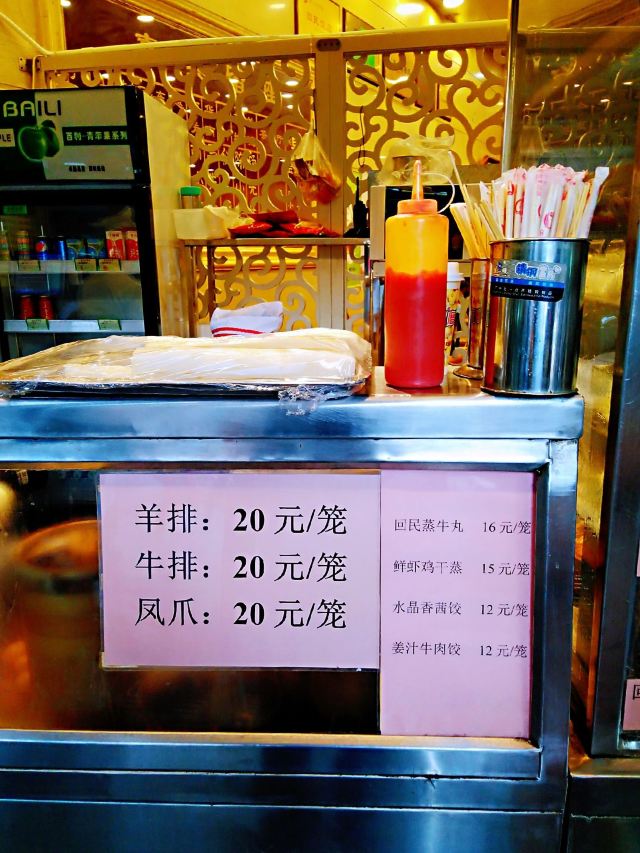 BAILI
百利·青苹果系列
羊排：20 元/笼
牛排：20 元/笼
凤爪：20 元/笼
回民蒸牛丸 16 元/笼
鲜虾鸡干蒸 15 元/笼
水晶香茜饺 12 元/笼
姜汁牛肉饺 12 元/笼